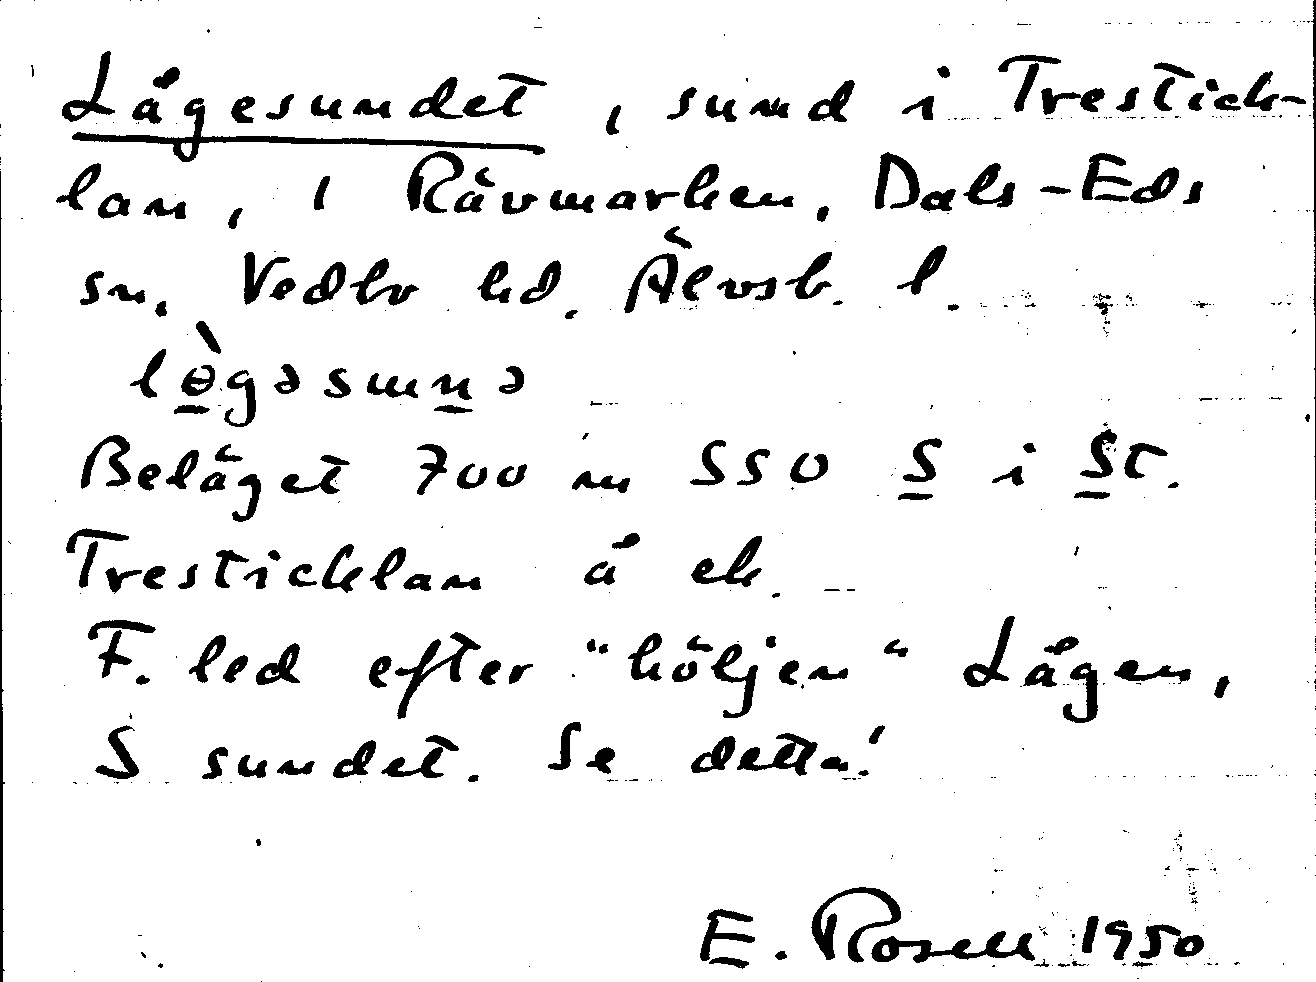 Lågesundet, sund i Trestick-
lan, i Rävmarken, Dals-Eds
sn, Vedbo hd. Älvsb. l.
lò̱gəsuṉə
Beläget 700 m SSO S̱ i S̱t.
Tresticklan å ek.
F. led efter "höljen" Lågen,
S sundet. Se detta!
E. Rosell 1950